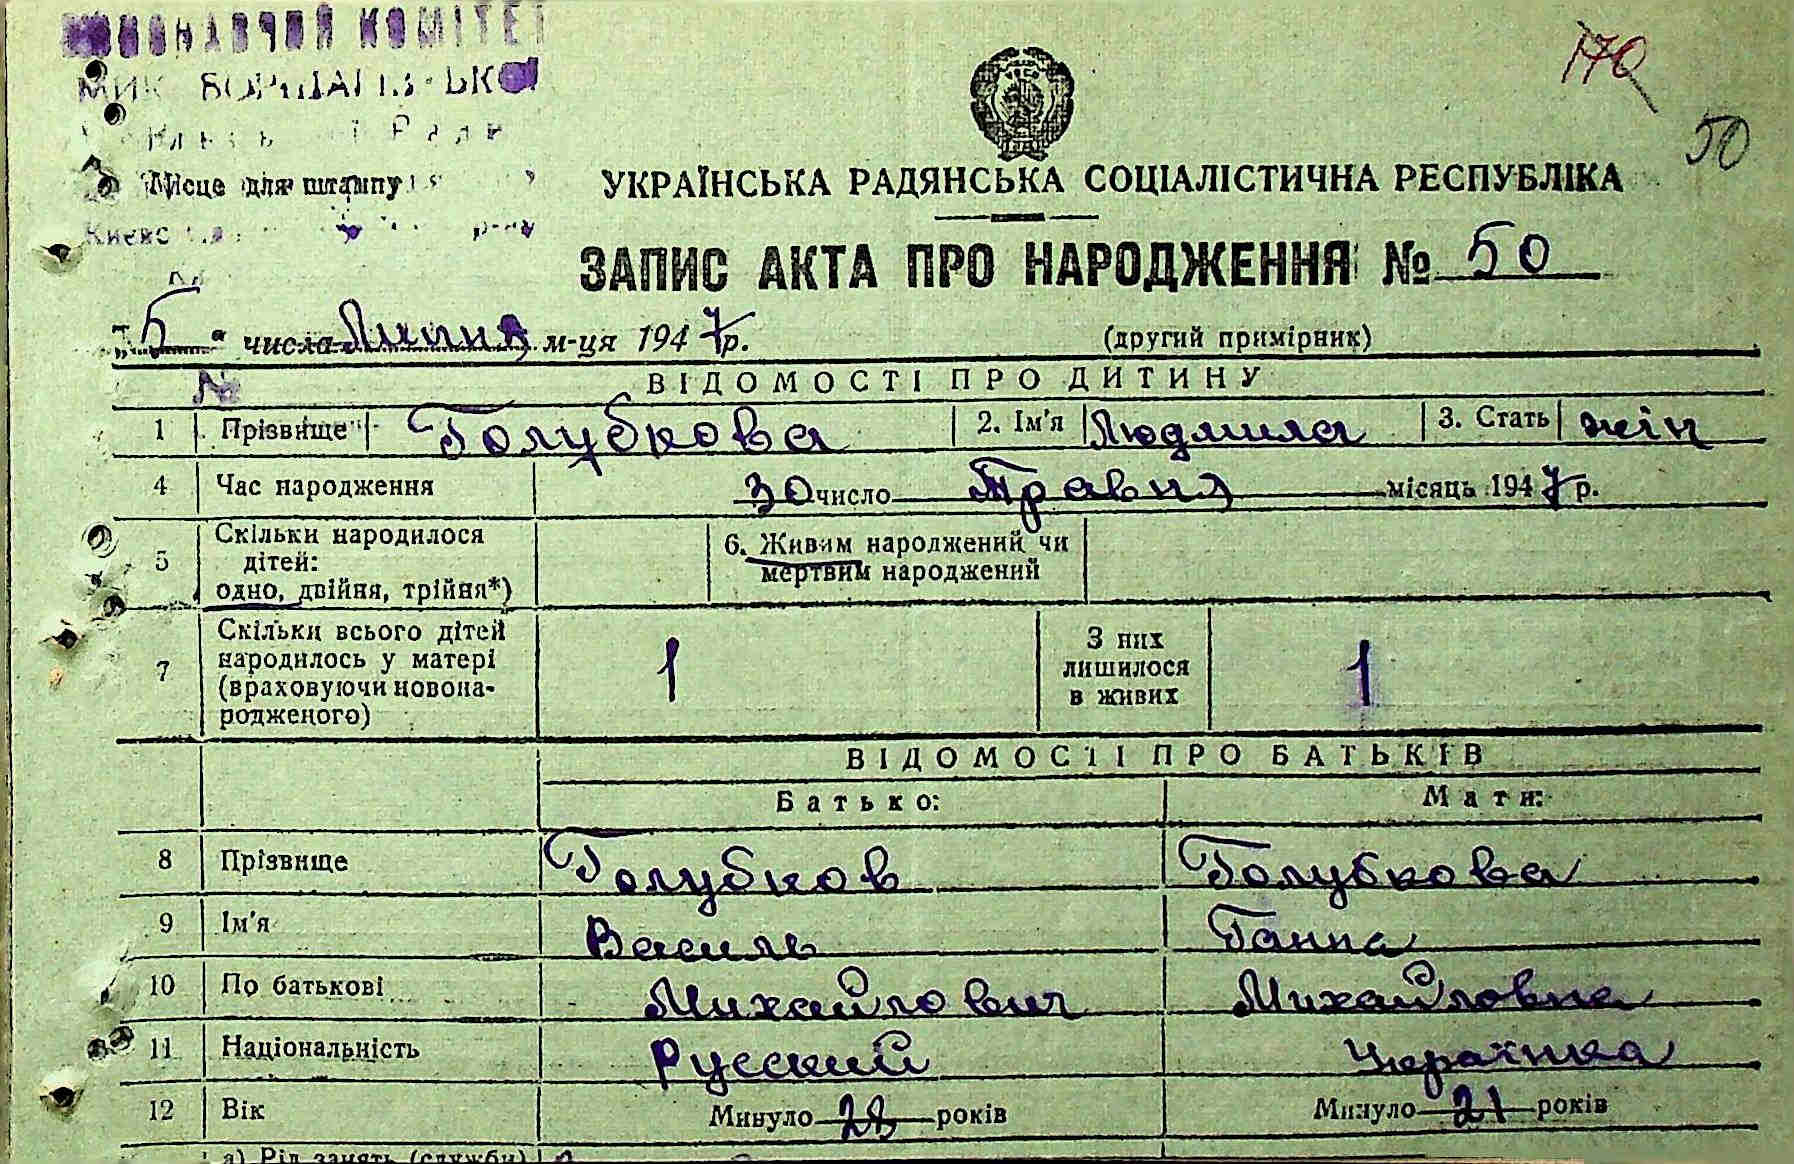 КОМІТЕТ
170
50
Місце для штампу
УКРАЇНСЬКА РАДЯНСЬКА СОЦІАЛІСТИЧНА РЕСПУБЛІКА
ЗАПИС АКТА ПРО НАРОДЖЕННЯ № 50
"5" числа Липня м-ця 1947 р.
(другий примірник)
ВІДОМОСТІ ПРО ДИТИНУ
1 Прізвище Голубкова 2. Ім'я Людмила 3. Стать жін
4 Час народження 30 число Травня місяць 1947 р.
5 Скільки народилося дітей: одно, двійня, трійня*) 6. Живим народжений чи мертвим народжений
7 Скільки всього дітей народилось у матері (враховуючи новонародженого) 1 З них лишилося в живих 1
ВІДОМОСТІ ПРО БАТЬКІВ
Батько: Мати:
8 Прізвище Голубков Голубкова
9 Ім'я Василь Ганна
10 По батькові Михайлович Михайловна
11 Національність Русский Українка
12 Вік Минуло 28 років Минуло 21 років
а) Рід занять (служби)